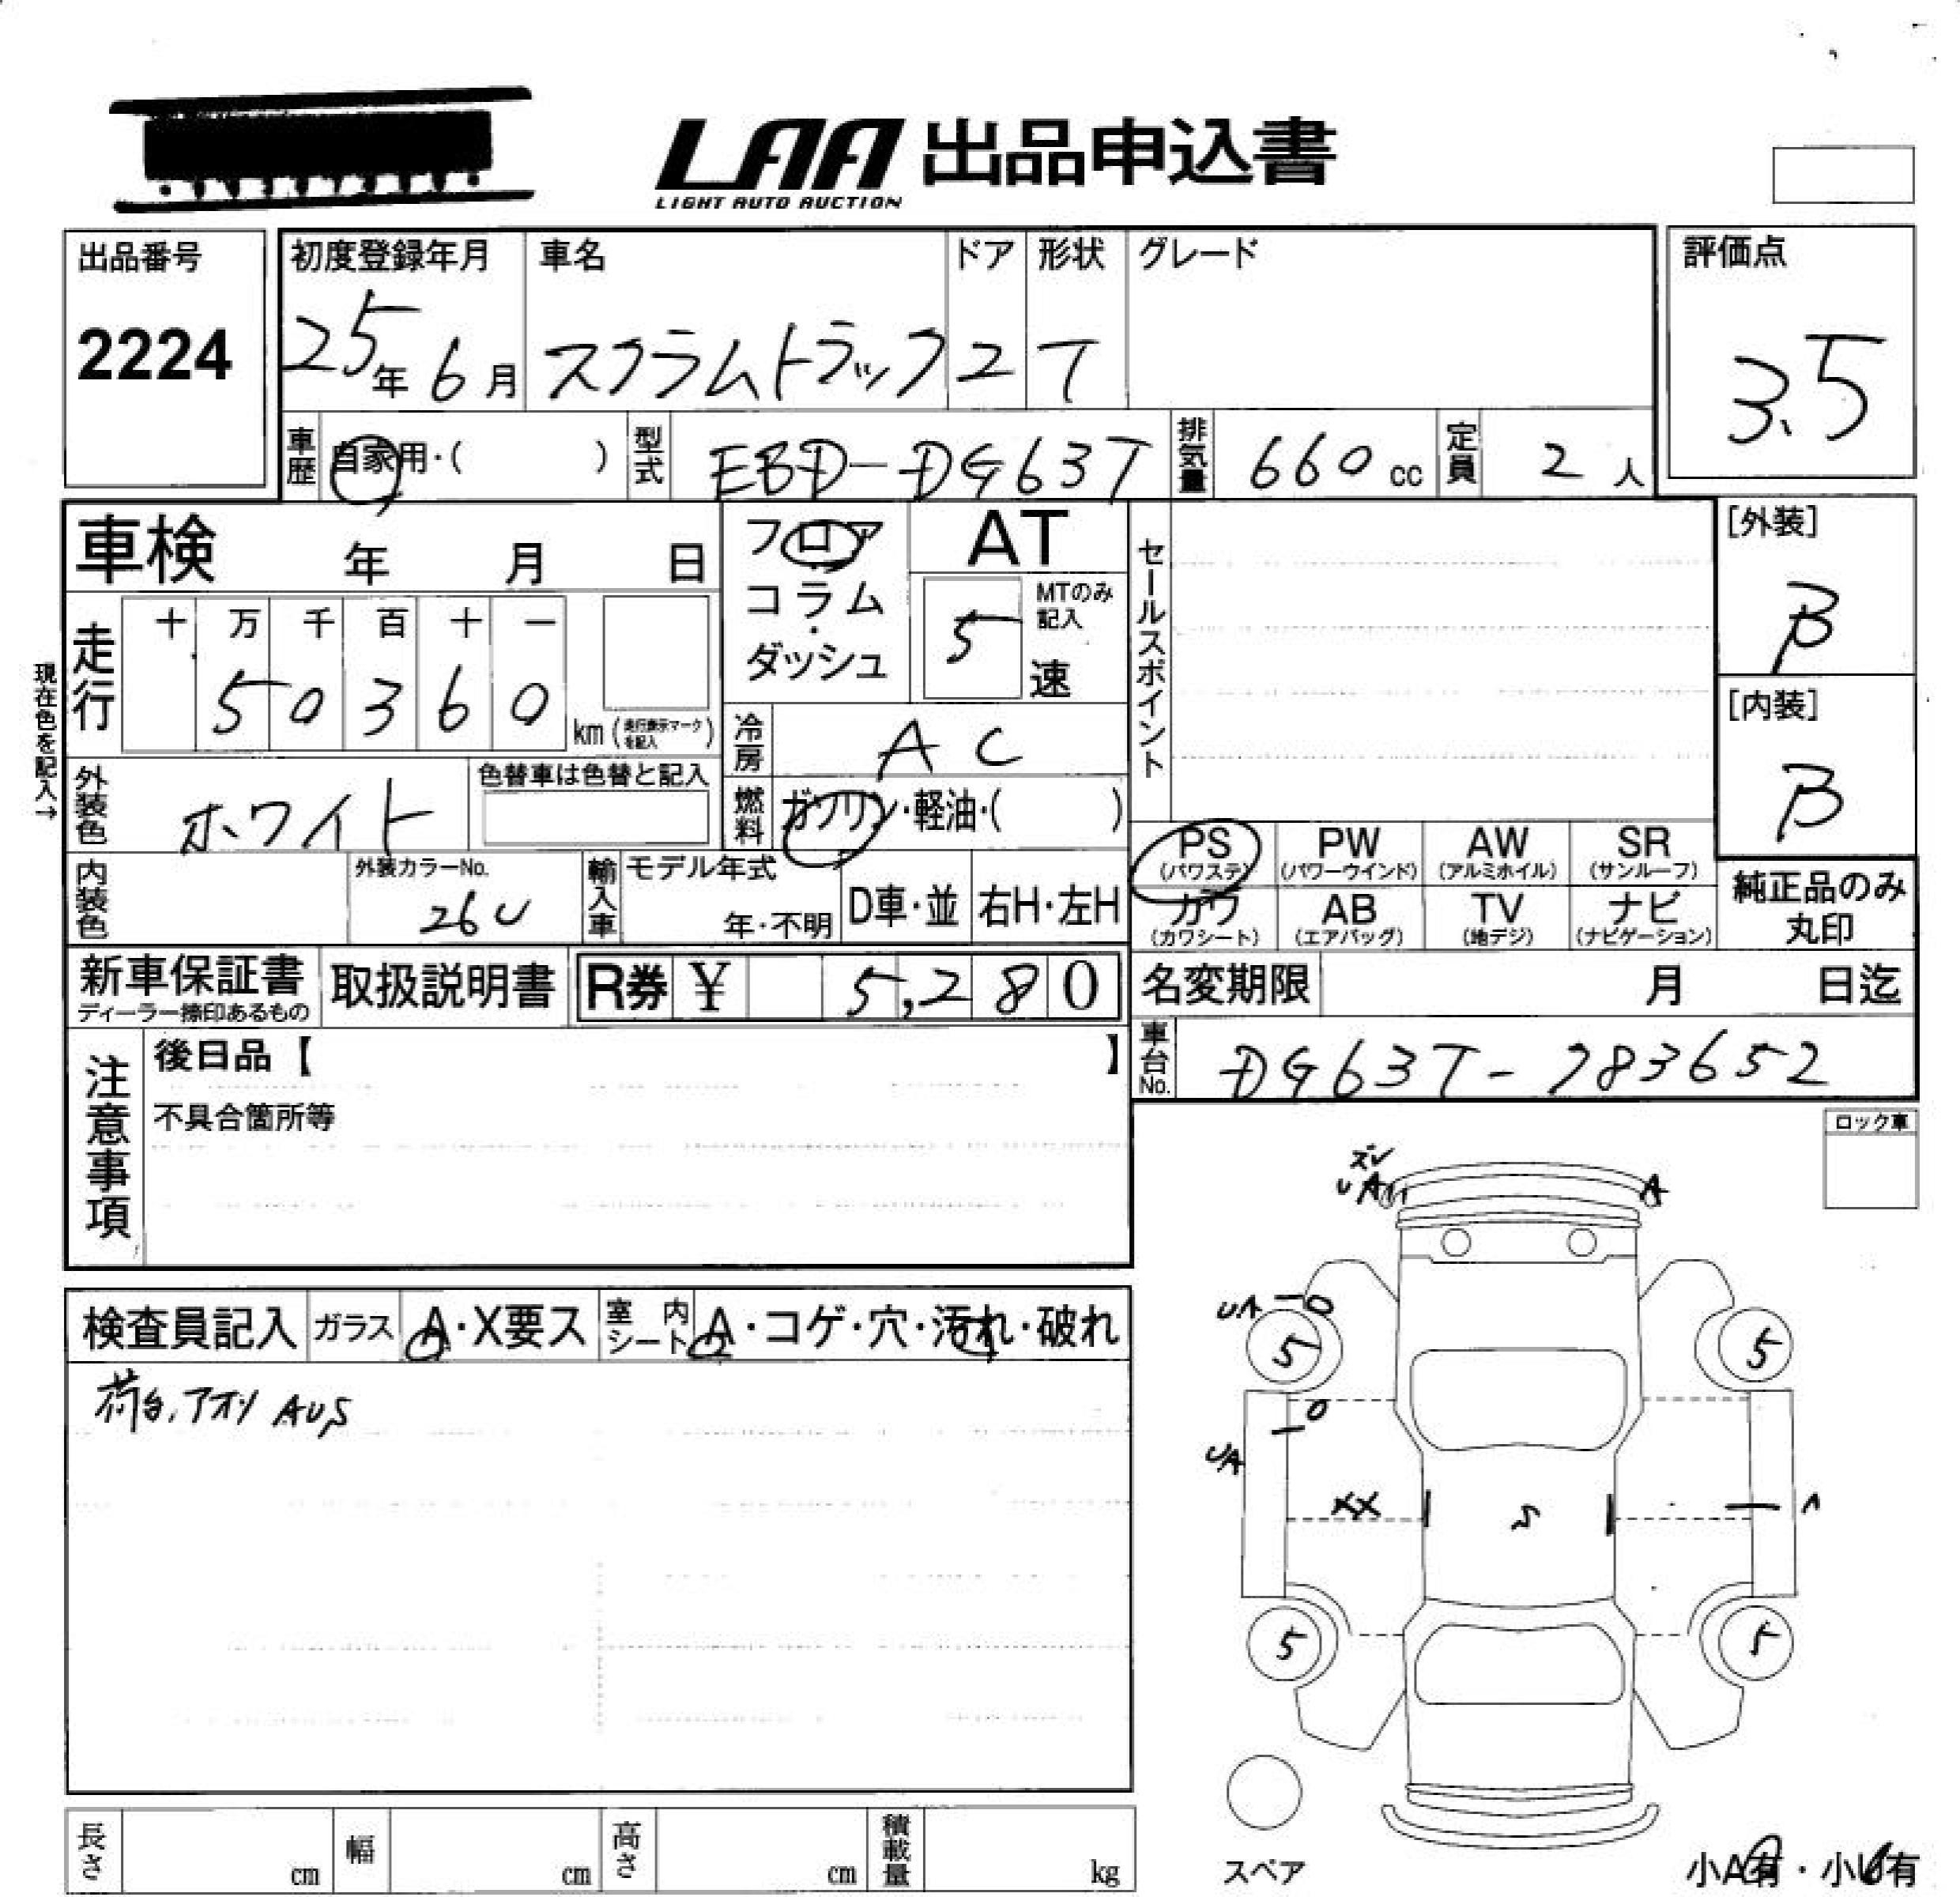 LAA 出品申込書
LIGHT AUTO AUCTION
出品番号
2224
初度登録年月
25年6月
車名
スクラムトラック
ドア
2
形状
T
グレード
評価点
3.5
車歴
自家用・( )
型式
EBD-DG63T
排気量
660cc
定員
2人
車検 年 月 日
フロア・コラム・ダッシュ
AT
MTのみ記入
5速
セールスポイント
[外装]
B
[内装]
B
現在色を記入→
走行
十 万 千 百 十 一
5 0 3 6 0
km (走行表示マークを記入)
冷房
AC
外装色
ホワイト
色替車は色替と記入
燃料
ガソリン・軽油・( )
内装色
外装カラーNo.
26U
輸入車
モデル年式
年・不明
D車・並
右H・左H
PS (パワステ)
PW (パワーウインド)
AW (アルミホイル)
SR (サンルーフ)
カワ (カワシート)
AB (エアバッグ)
TV (地デジ)
ナビ (ナビゲーション)
純正品のみ丸印
新車保証書
ディーラー捺印あるもの
取扱説明書
R券 ¥ 5,280
名変期限 月 日迄
車台No.
DG63T-283652
注意事項
後日品【 】
不具合箇所等
ロック車
ズレ
UA
A
UA
5
5
UA
XX
S
5
5
検査員記入
ガラス
A・X要ス
室内シート
A・コゲ・穴・汚れ・破れ
荷台、アオリ AUS
長さ cm
幅 cm
高さ cm
積載量 kg
スペア
小A有・小U有